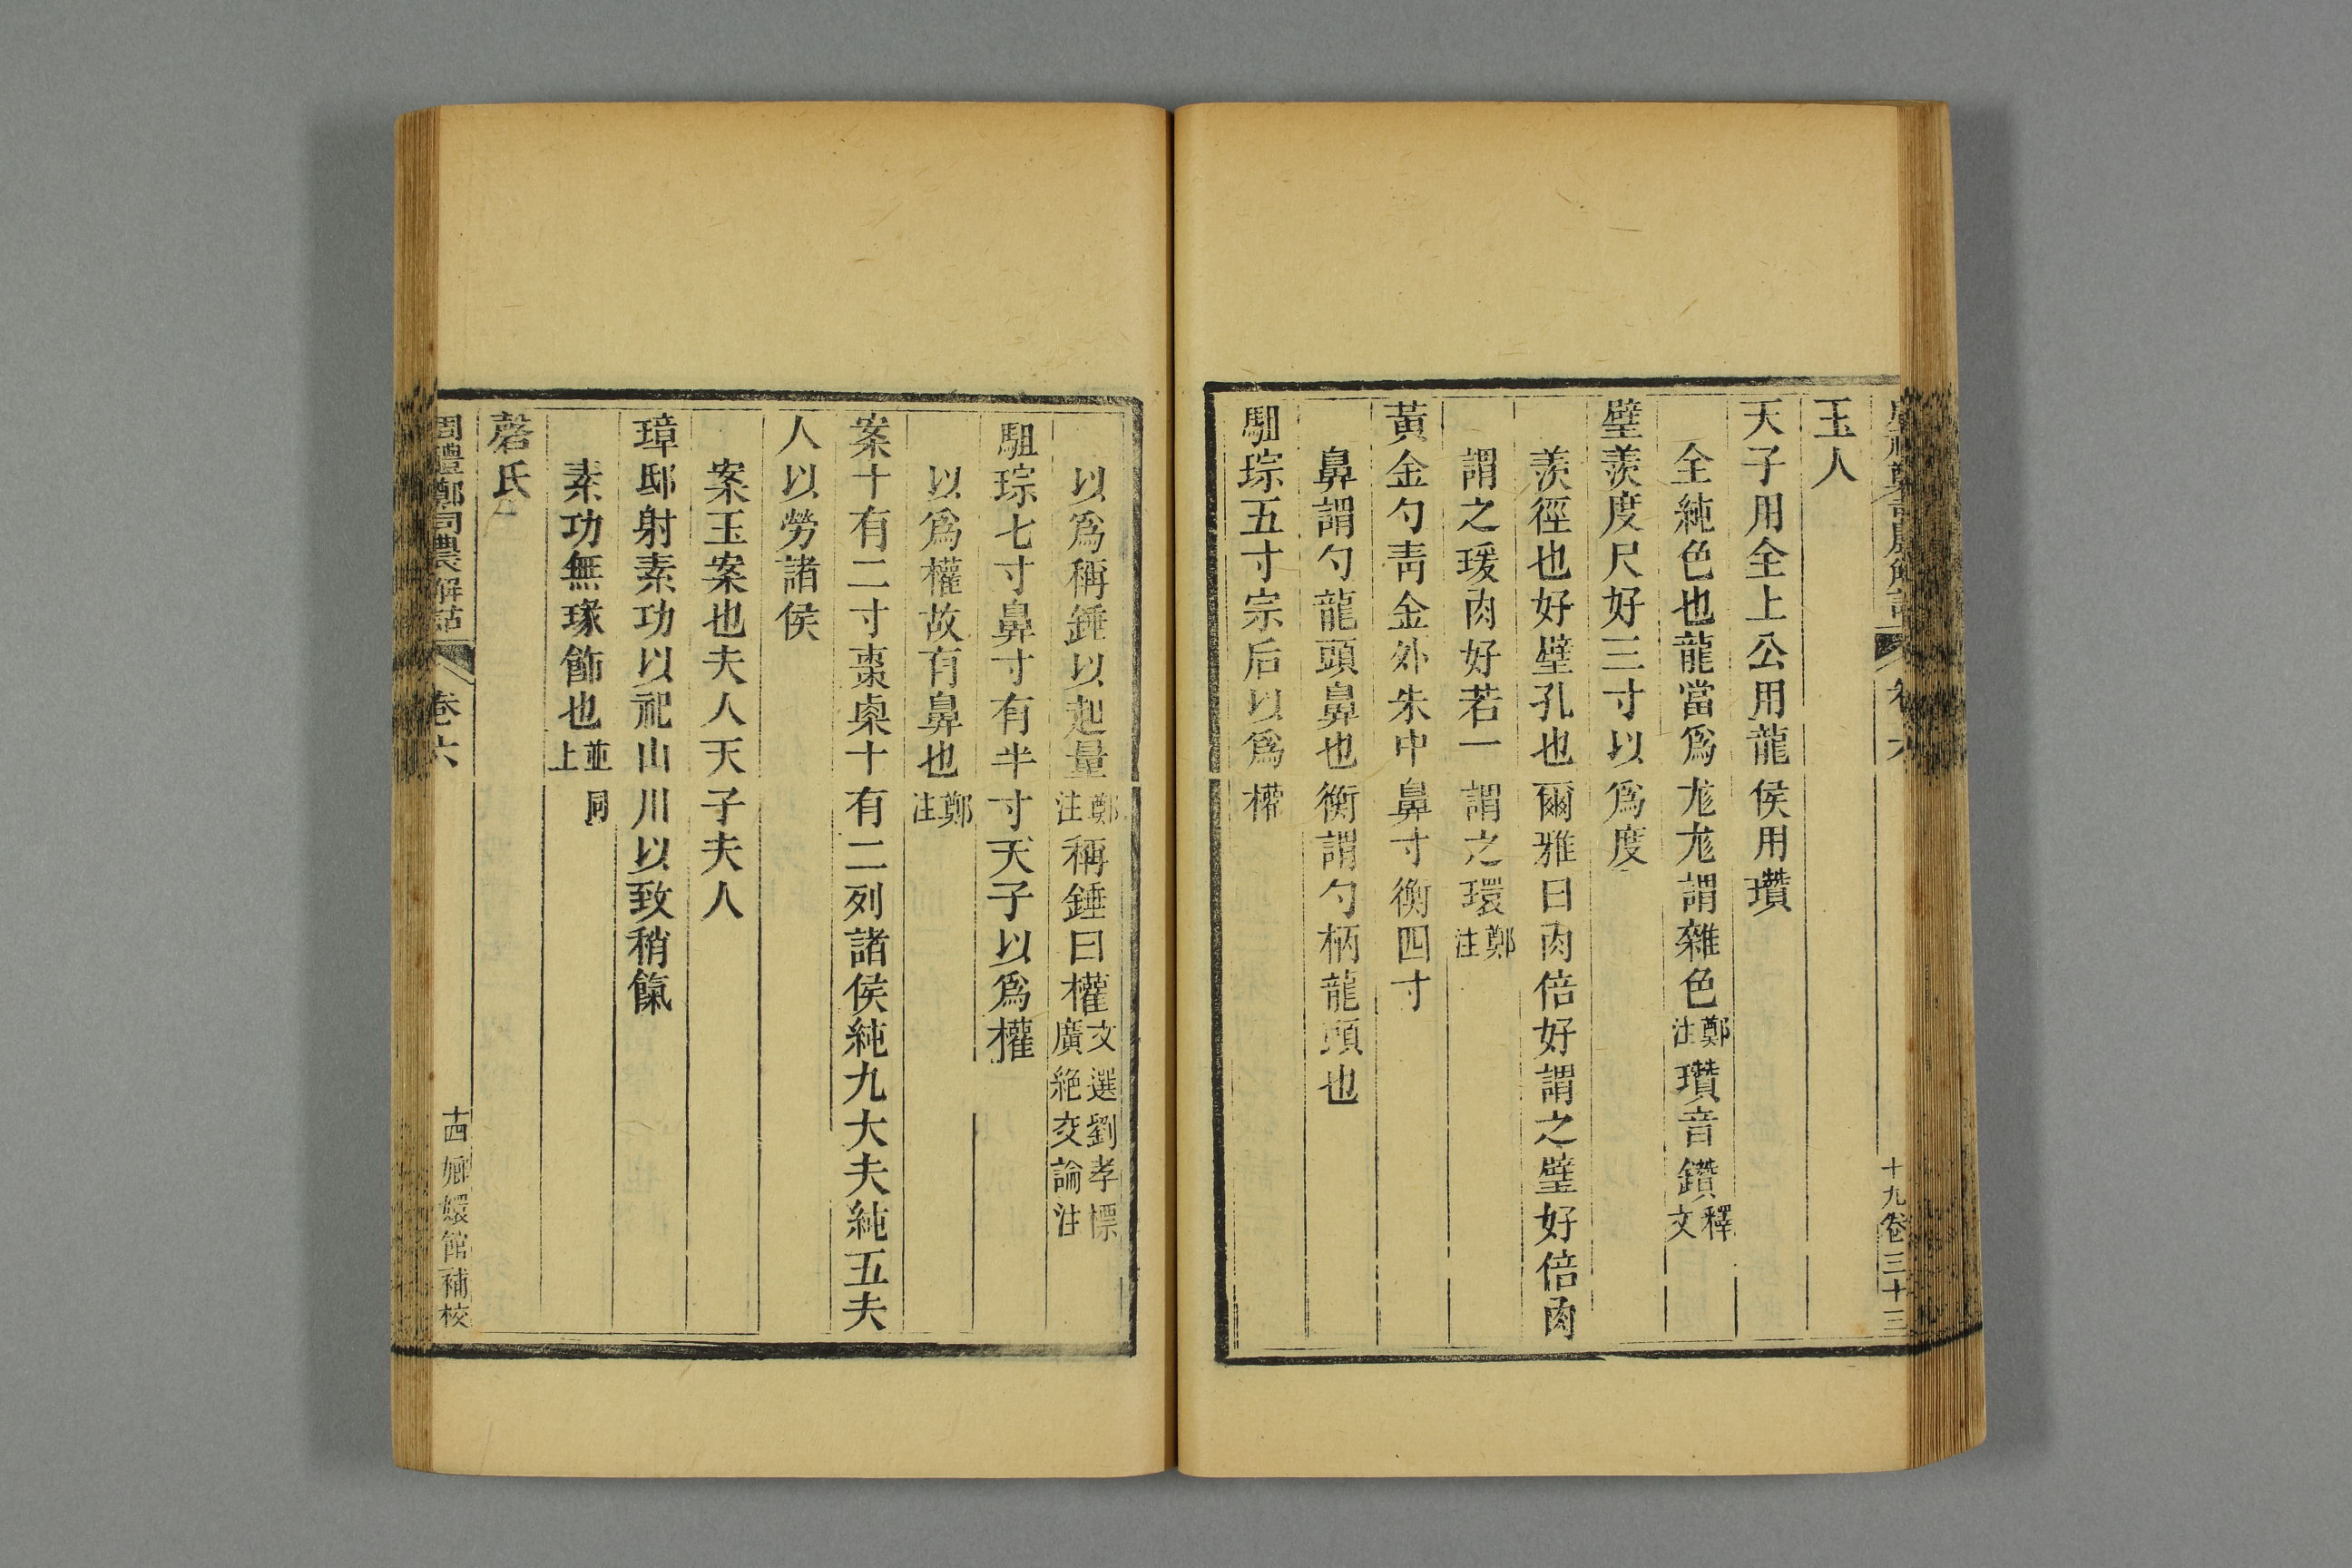 玉人
天子用全上公用龍侯用瓚
全純色也龍當爲尨尨謂雜色鄭注瓚音鑽釋文
璧羨度尺好三寸以爲度
羨徑也好璧孔也爾雅曰肉倍好謂之璧好倍肉
謂之瑗肉好若一謂之環鄭注
黃金勺青金外朱中鼻寸衡四寸
鼻謂勺龍頭鼻也衡謂勺柄龍頭也
駔琮五寸宗后以爲權
十九卷三十三
以爲稱錘以起量鄭注稱錘曰權文選劉孝標廣絶交論注
駔琮七寸鼻寸有半寸天子以爲權
以爲權故有鼻也鄭注
案十有二寸棗㮚十有二列諸侯純九大夫純五夫
人以勞諸侯
案玉案也夫人天子夫人
璋邸射素功以祀山川以致稍餼
素功無瑑飾也並同上
磬氏
周禮鄭司農解詁 卷六 十四 嫏嬛館補校